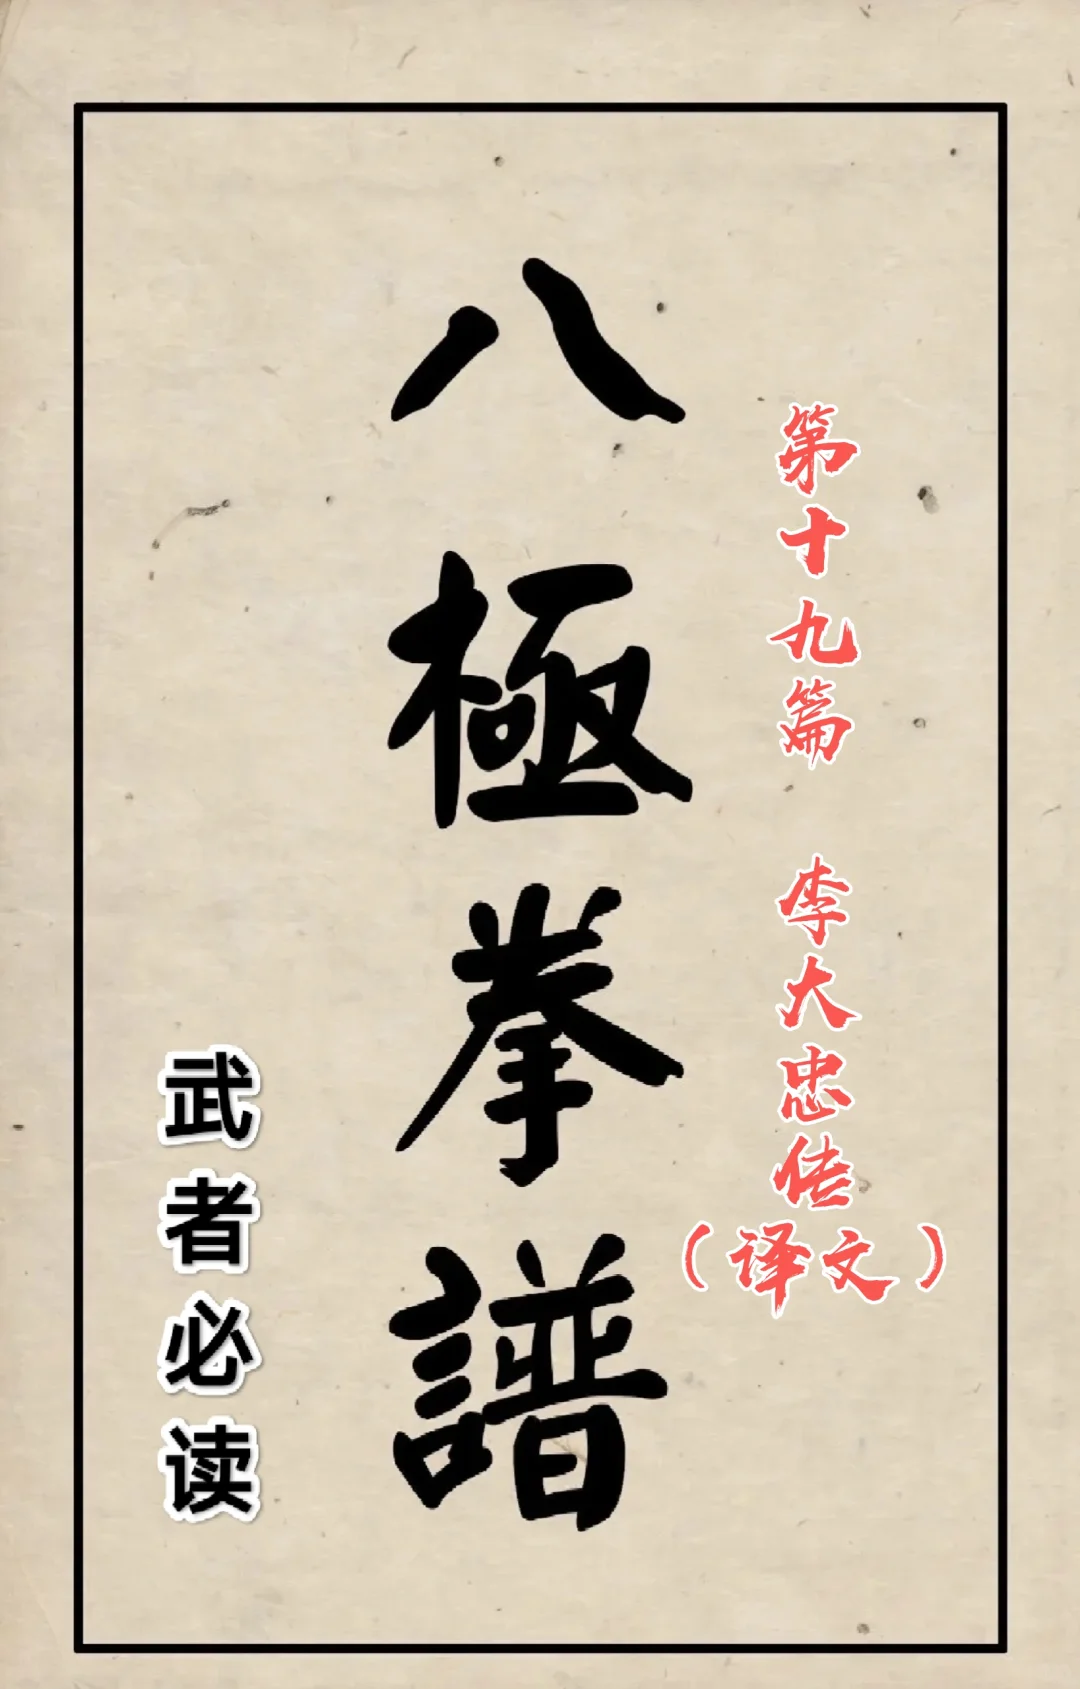 八極拳譜
第十九篇 李大忠传
（译文）
武者必读